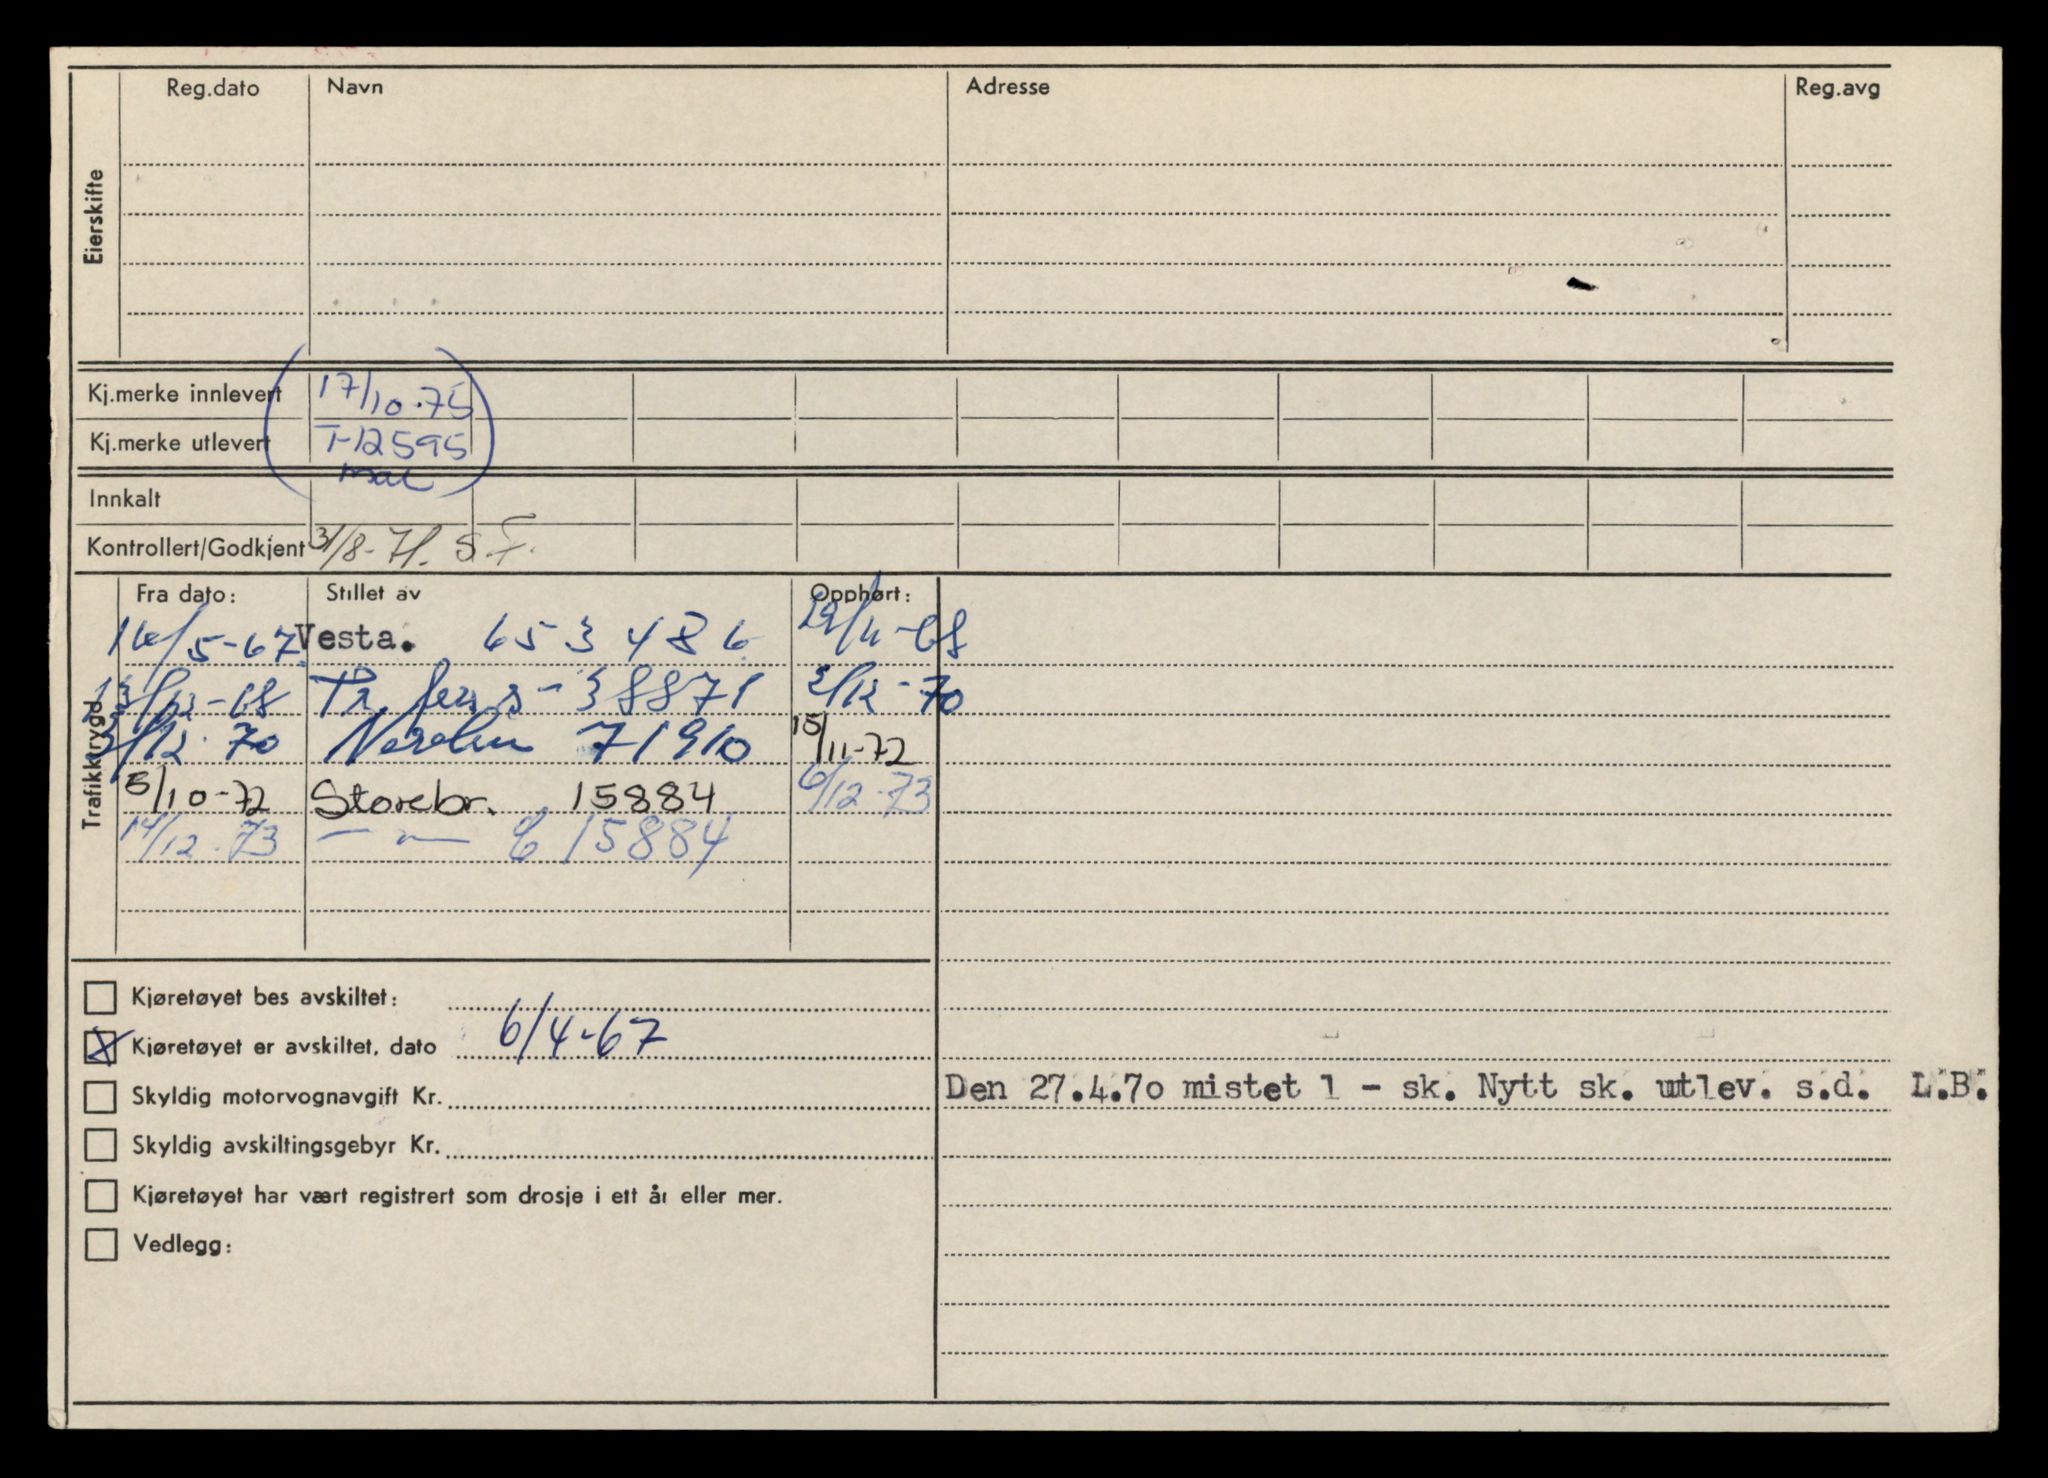 Eierskifte
Reg.dato Navn Adresse Reg.avg
Kj.merke innlevert 17/10-75
Kj.merke utlevert T-12595
Innkalt
Kontrollert/Godkjent 31/8-71. S.F.
Trafikktrygd
Fra dato: Stillet av Opphørt:
16/5-67 Vesta. 653486 29/11-68
13/12-68 Tr. 38871 2/12-70
3/12-70 71910 15/11-72
5/10-72 Storebr. 15884 6/12-73
14/12-73 — — 15884
Kjøretøyet bes avskiltet:
X Kjøretøyet er avskiltet, dato 6/4-67
Skyldig motorvognavgift Kr.
Den 27.4.7o mistet 1 - sk. Nytt sk. utlev. s.d. L.B.
Skyldig avskiltingsgebyr Kr.
Kjøretøyet har vært registrert som drosje i ett år eller mer.
Vedlegg: